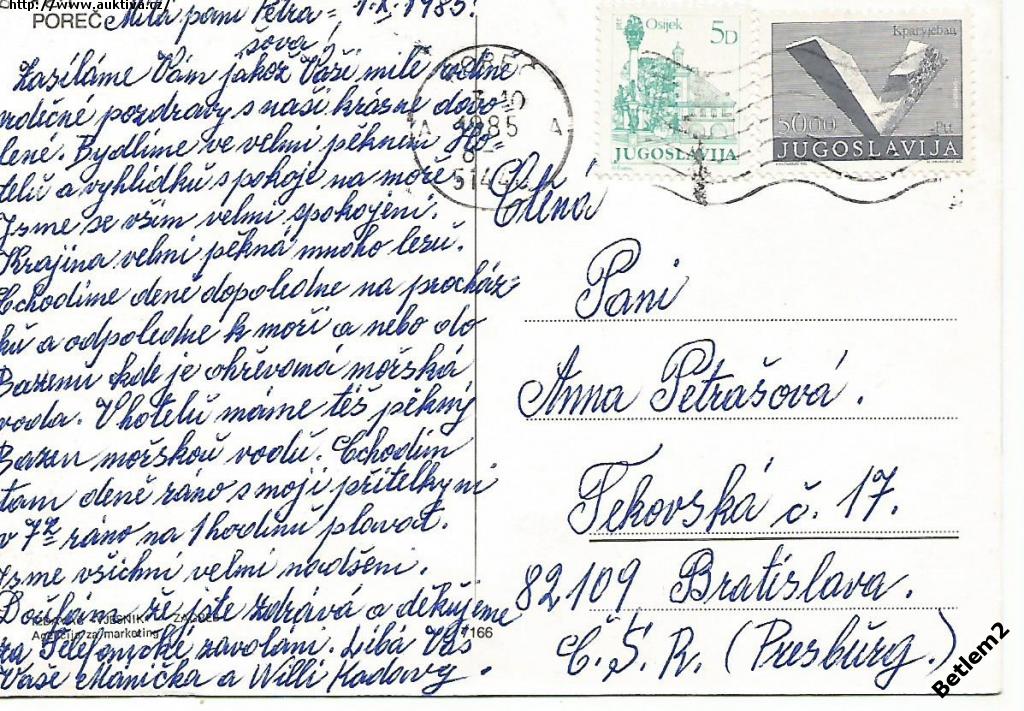 http://www.auktiva.cz/
POREČ
Milá paní Petra= 1.X.1985.
šová!
Zasíláme Vám jakož Vaší milé rodině
srdečné pozdravy s naší krásné dovo
lené. Bydlíme ve velmi pěkním Ho-
telů a vyhlídků s pokoje na moře.
Jsme se vším velmi spokojeni.
Krajina velmi pěkná mnoho lesů.
Chodíme deně dopoledne na procház=
ků a odpoledne k moři a nebo do
Bazenu kde je ohřevovaná mořská
voda. V hotelů máme též pěkný
Bazen mořskou vodů. Chodím
tam deně ráno s moji přítelkyni
v 7 ráno na 1 hodinů plavat.
Jsme všichni velmi nadšeni.
Doufám že jste zdrává a děkujeme
za Telefonické zavolání. Líbá Vás
Vaše Mánička a Willi Kadavy.
VJESNIK ZAGREB
Agencija za marketing 7166
1985
A A
Osijek
5D
JUGOSLAVIJA
5000
JUGOSLAVIJA
Ctěná
Paní
Anna Petrašová.
Tekovská č. 17.
82109 Bratislava.
Č.S.R. (Presbürg.)
Betlem2